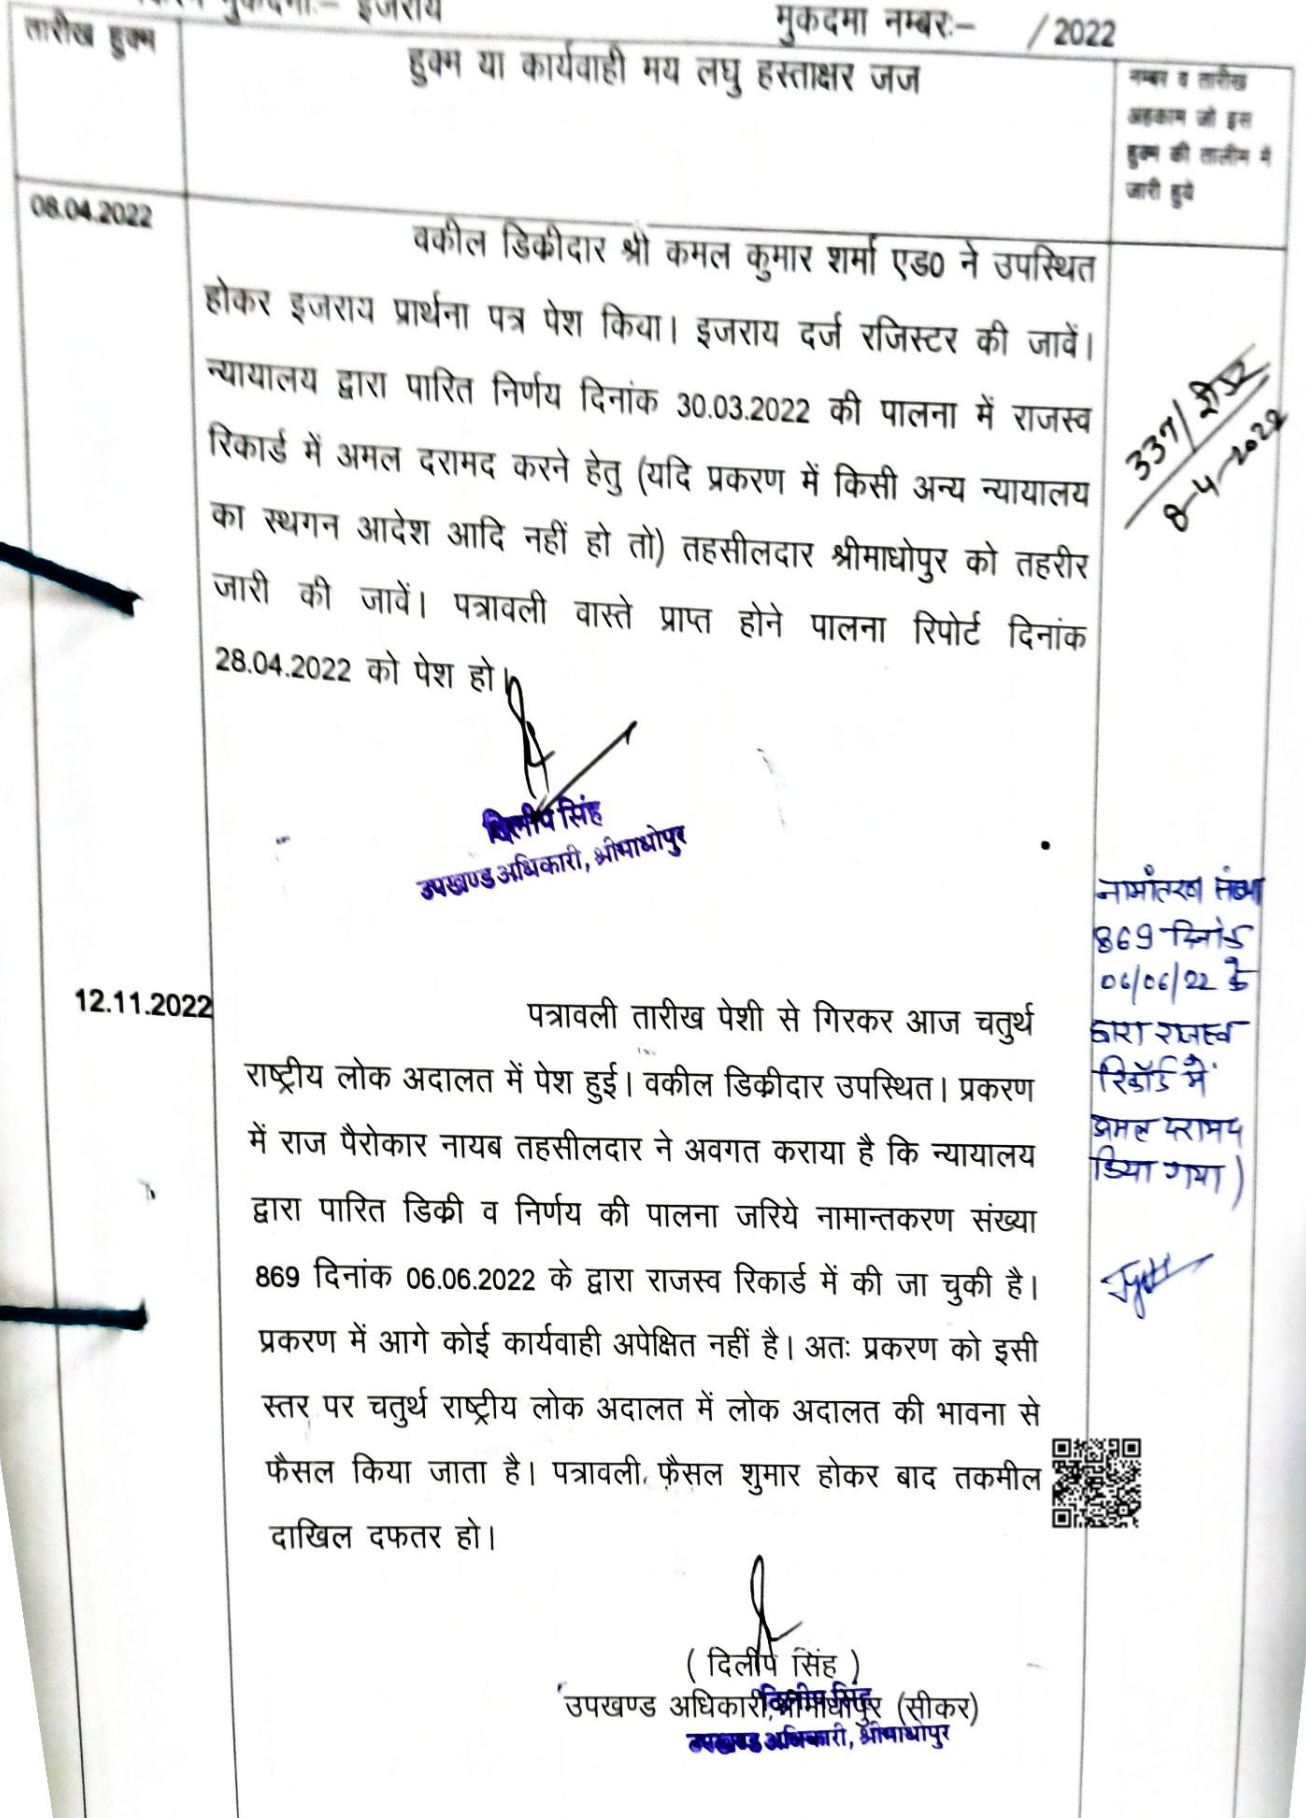 मुकदमा:- इजराय
मुकदमा नम्बर:- / 2022
तारीख हुक्म
हुक्म या कार्यवाही मय लघु हस्ताक्षर जज
नम्बर व तारीख
अहकाम जो इस
हुक्म की तालीम मे
जारी हुये
08.04.2022
वकील डिकीदार श्री कमल कुमार शर्मा एड0 ने उपस्थित
होकर इजराय प्रार्थना पत्र पेश किया। इजराय दर्ज रजिस्टर की जावें।
न्यायालय द्वारा पारित निर्णय दिनांक 30.03.2022 की पालना में राजस्व
रिकार्ड में अमल दरामद करने हेतु (यदि प्रकरण में किसी अन्य न्यायालय
का स्थगन आदेश आदि नहीं हो तो) तहसीलदार श्रीमाधोपुर को तहरीर
जारी की जावें। पत्रावली वास्ते प्राप्त होने पालना रिपोर्ट दिनांक
28.04.2022 को पेश हो।
337/रीडर
8-4-2022
दिलीप सिंह
उपखण्ड अधिकारी, श्रीमाधोपुर
नामांतरण संख्या
869 दिनांक
06/06/22 के
द्वारा राजस्व
रिकॉर्ड में
अमल दरामद
किया गया)
12.11.2022
पत्रावली तारीख पेशी से गिरकर आज चतुर्थ
राष्ट्रीय लोक अदालत में पेश हुई। वकील डिकीदार उपस्थित। प्रकरण
में राज पैरोकार नायब तहसीलदार ने अवगत कराया है कि न्यायालय
द्वारा पारित डिकी व निर्णय की पालना जरिये नामान्तकरण संख्या
869 दिनांक 06.06.2022 के द्वारा राजस्व रिकार्ड में की जा चुकी है।
प्रकरण में आगे कोई कार्यवाही अपेक्षित नहीं है। अतः प्रकरण को इसी
स्तर पर चतुर्थ राष्ट्रीय लोक अदालत में लोक अदालत की भावना से
फैसल किया जाता है। पत्रावली फैसल शुमार होकर बाद तकमील
दाखिल दफतर हो।
( दिलीप सिंह )
उपखण्ड अधिकारी, श्रीमाधोपुर (सीकर)
दिलीप सिंह
उपखण्ड अधिकारी, श्रीमाधोपुर